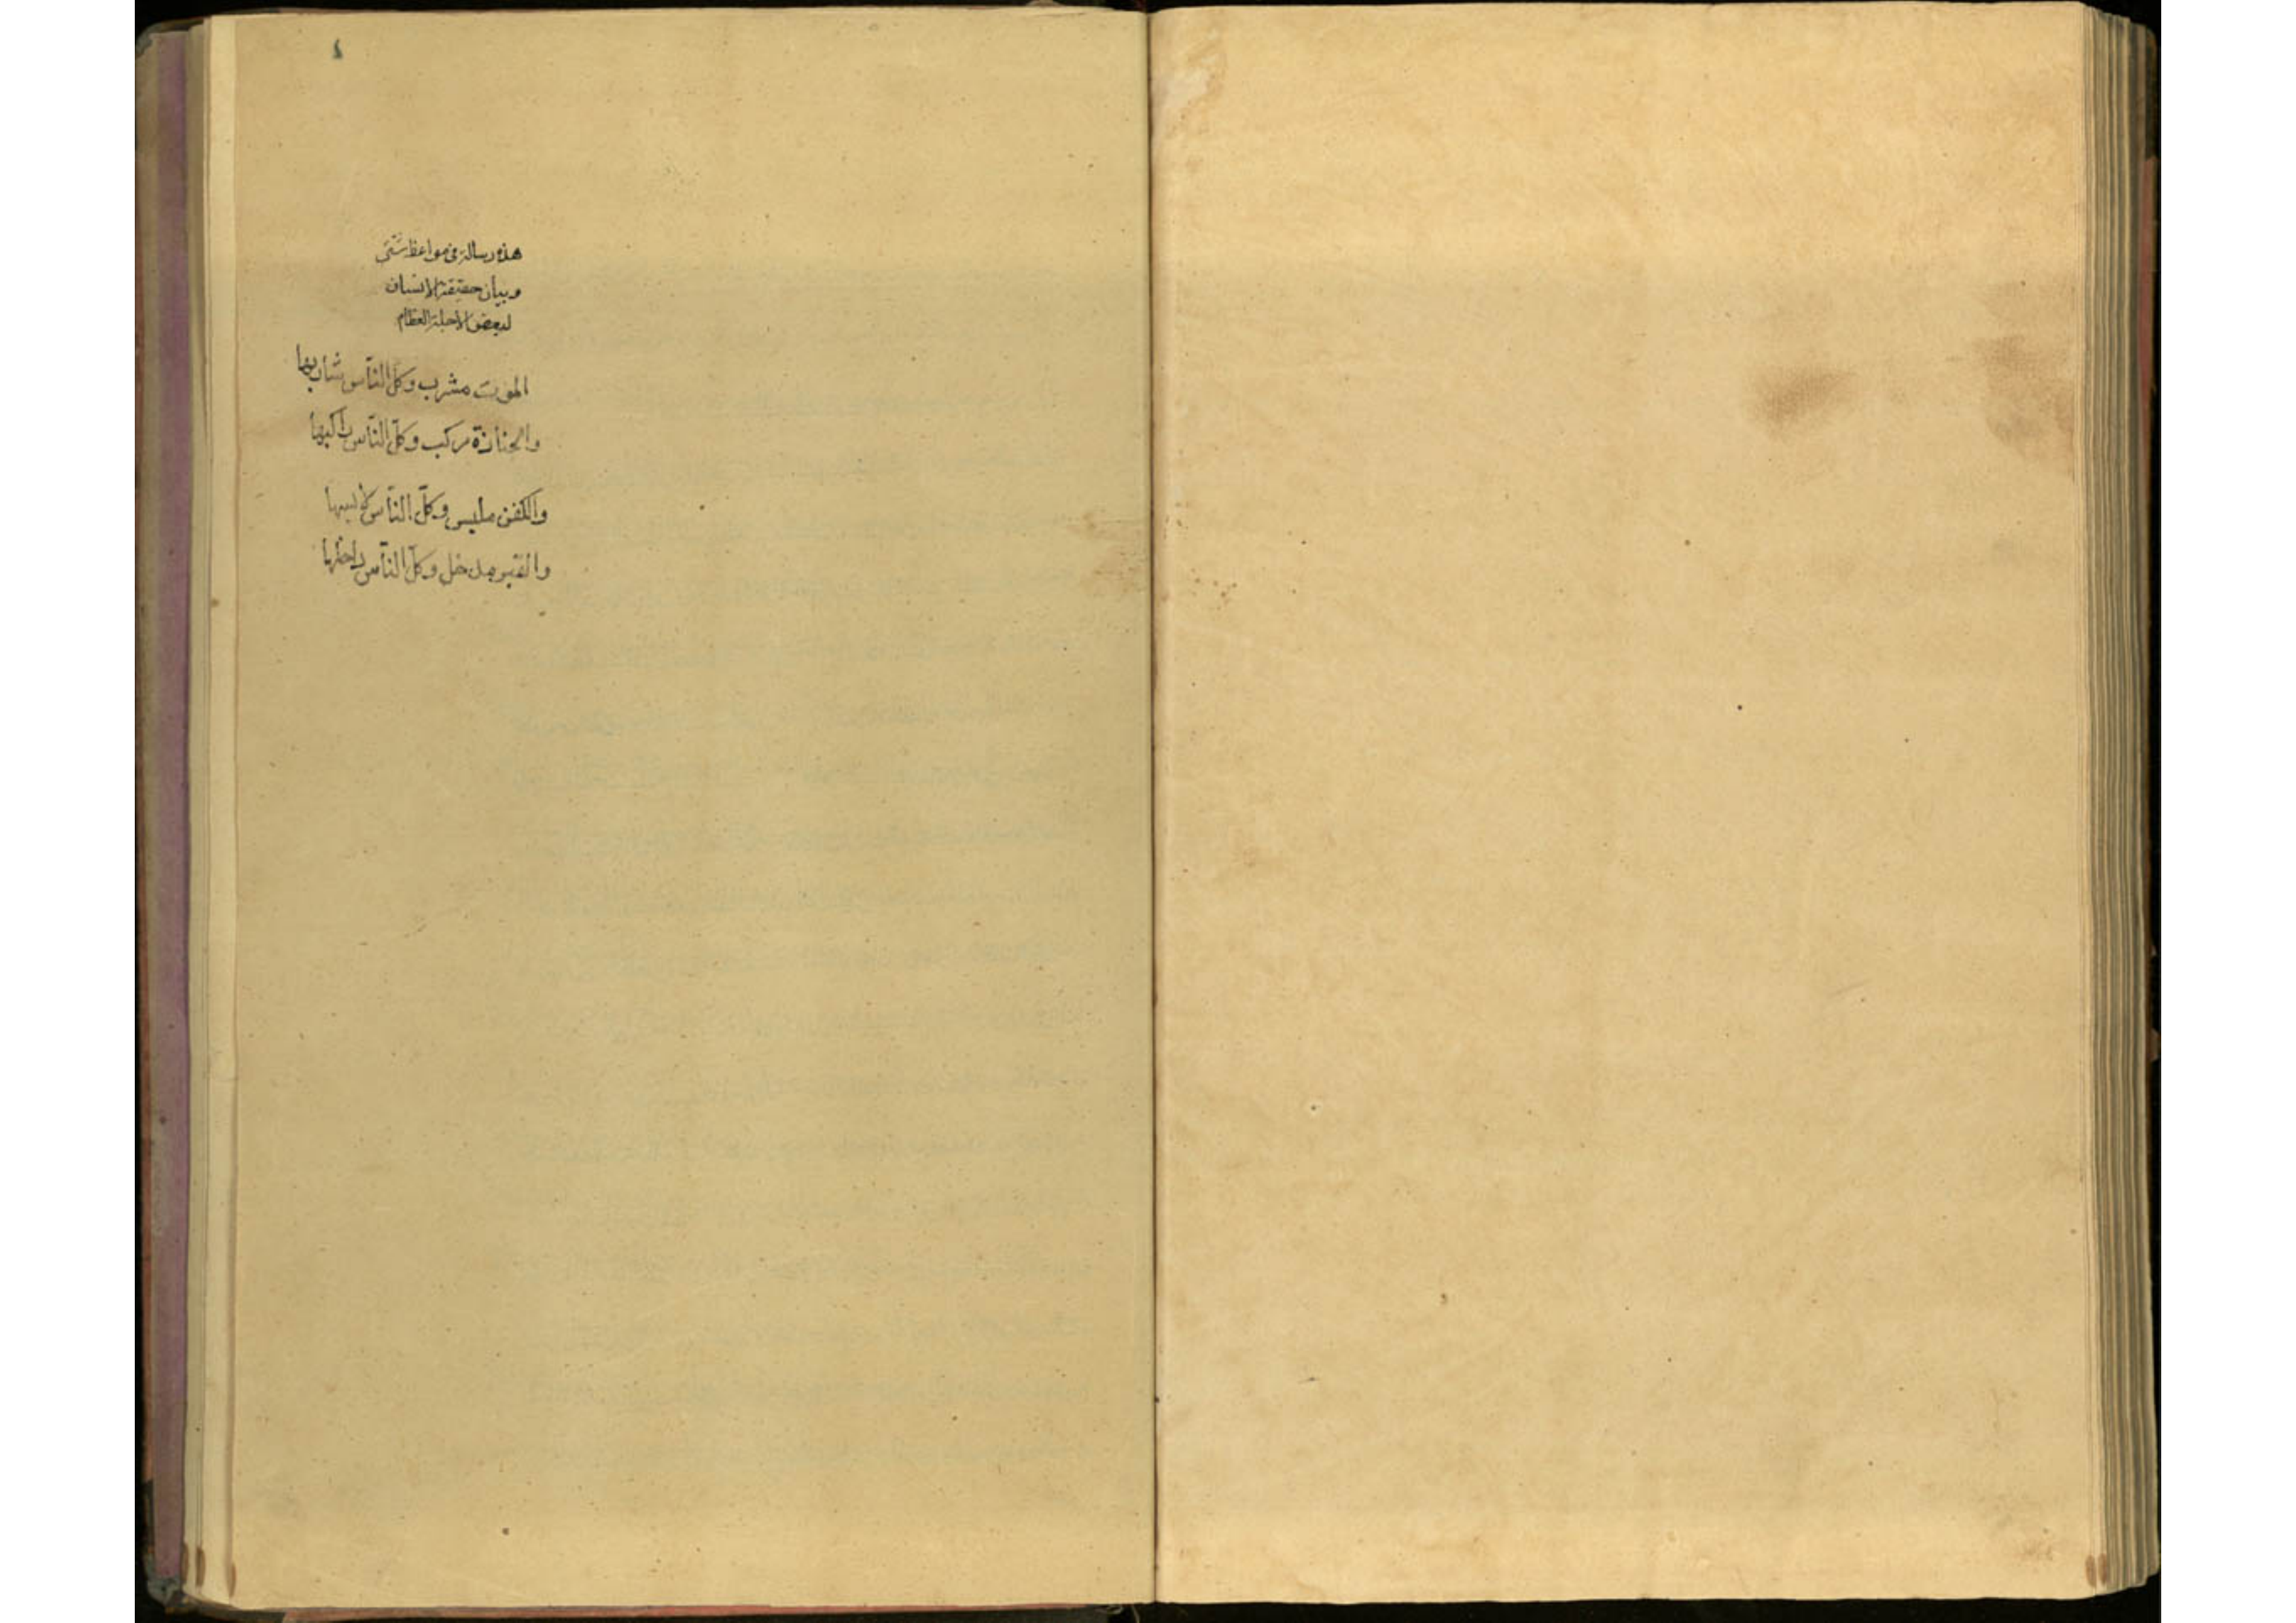 هذه رسالة فى مواعظ شتى
وبيان حقيقة الانسان
لبعض الاجلة العظام
الموت مشرب وكل الناس شاربها
والجنازة مركب وكل الناس راكبها
والكفن ملبس وكل الناس لابسها
والقبر مدخل وكل الناس داخلها